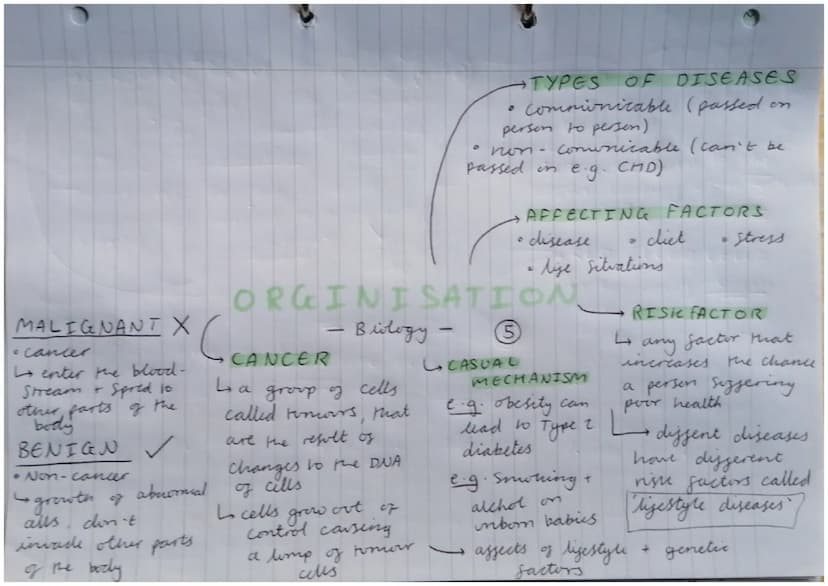 TYPES OF DISEASES
• communicable (passed on
person to person)
• non-comunicable (can't be
passed in e.g. CHD)
AFFECTING FACTORS
• disease • diet • stress
• life situations
ORGINISATION
— Biology — 5
RISK FACTOR
↳ any factor that
increases the chance
a person suffering
poor health
↳ diffent diseases
have different
risk factors called
'lifestyle diseases'
CASUAL
MECHANISM
e.g. obesity can
lead to Type 2
diabetes
e.g. Smoking +
alchol on
unborn babies
→ affects of lifestyle + genetic
factors
CANCER
↳ a group of cells
called tumours, that
are the result of
changes to the DNA
of cells
↳ cells grow out of
control causing
a lump of tumour
cells
MALIGNANT X
• cancer
↳ enter the blood-
stream + spred to
other parts of the
body
BENIGN ✓
• Non-cancer
↳ growth of abnormal
cells. don't
invade other parts
of the body